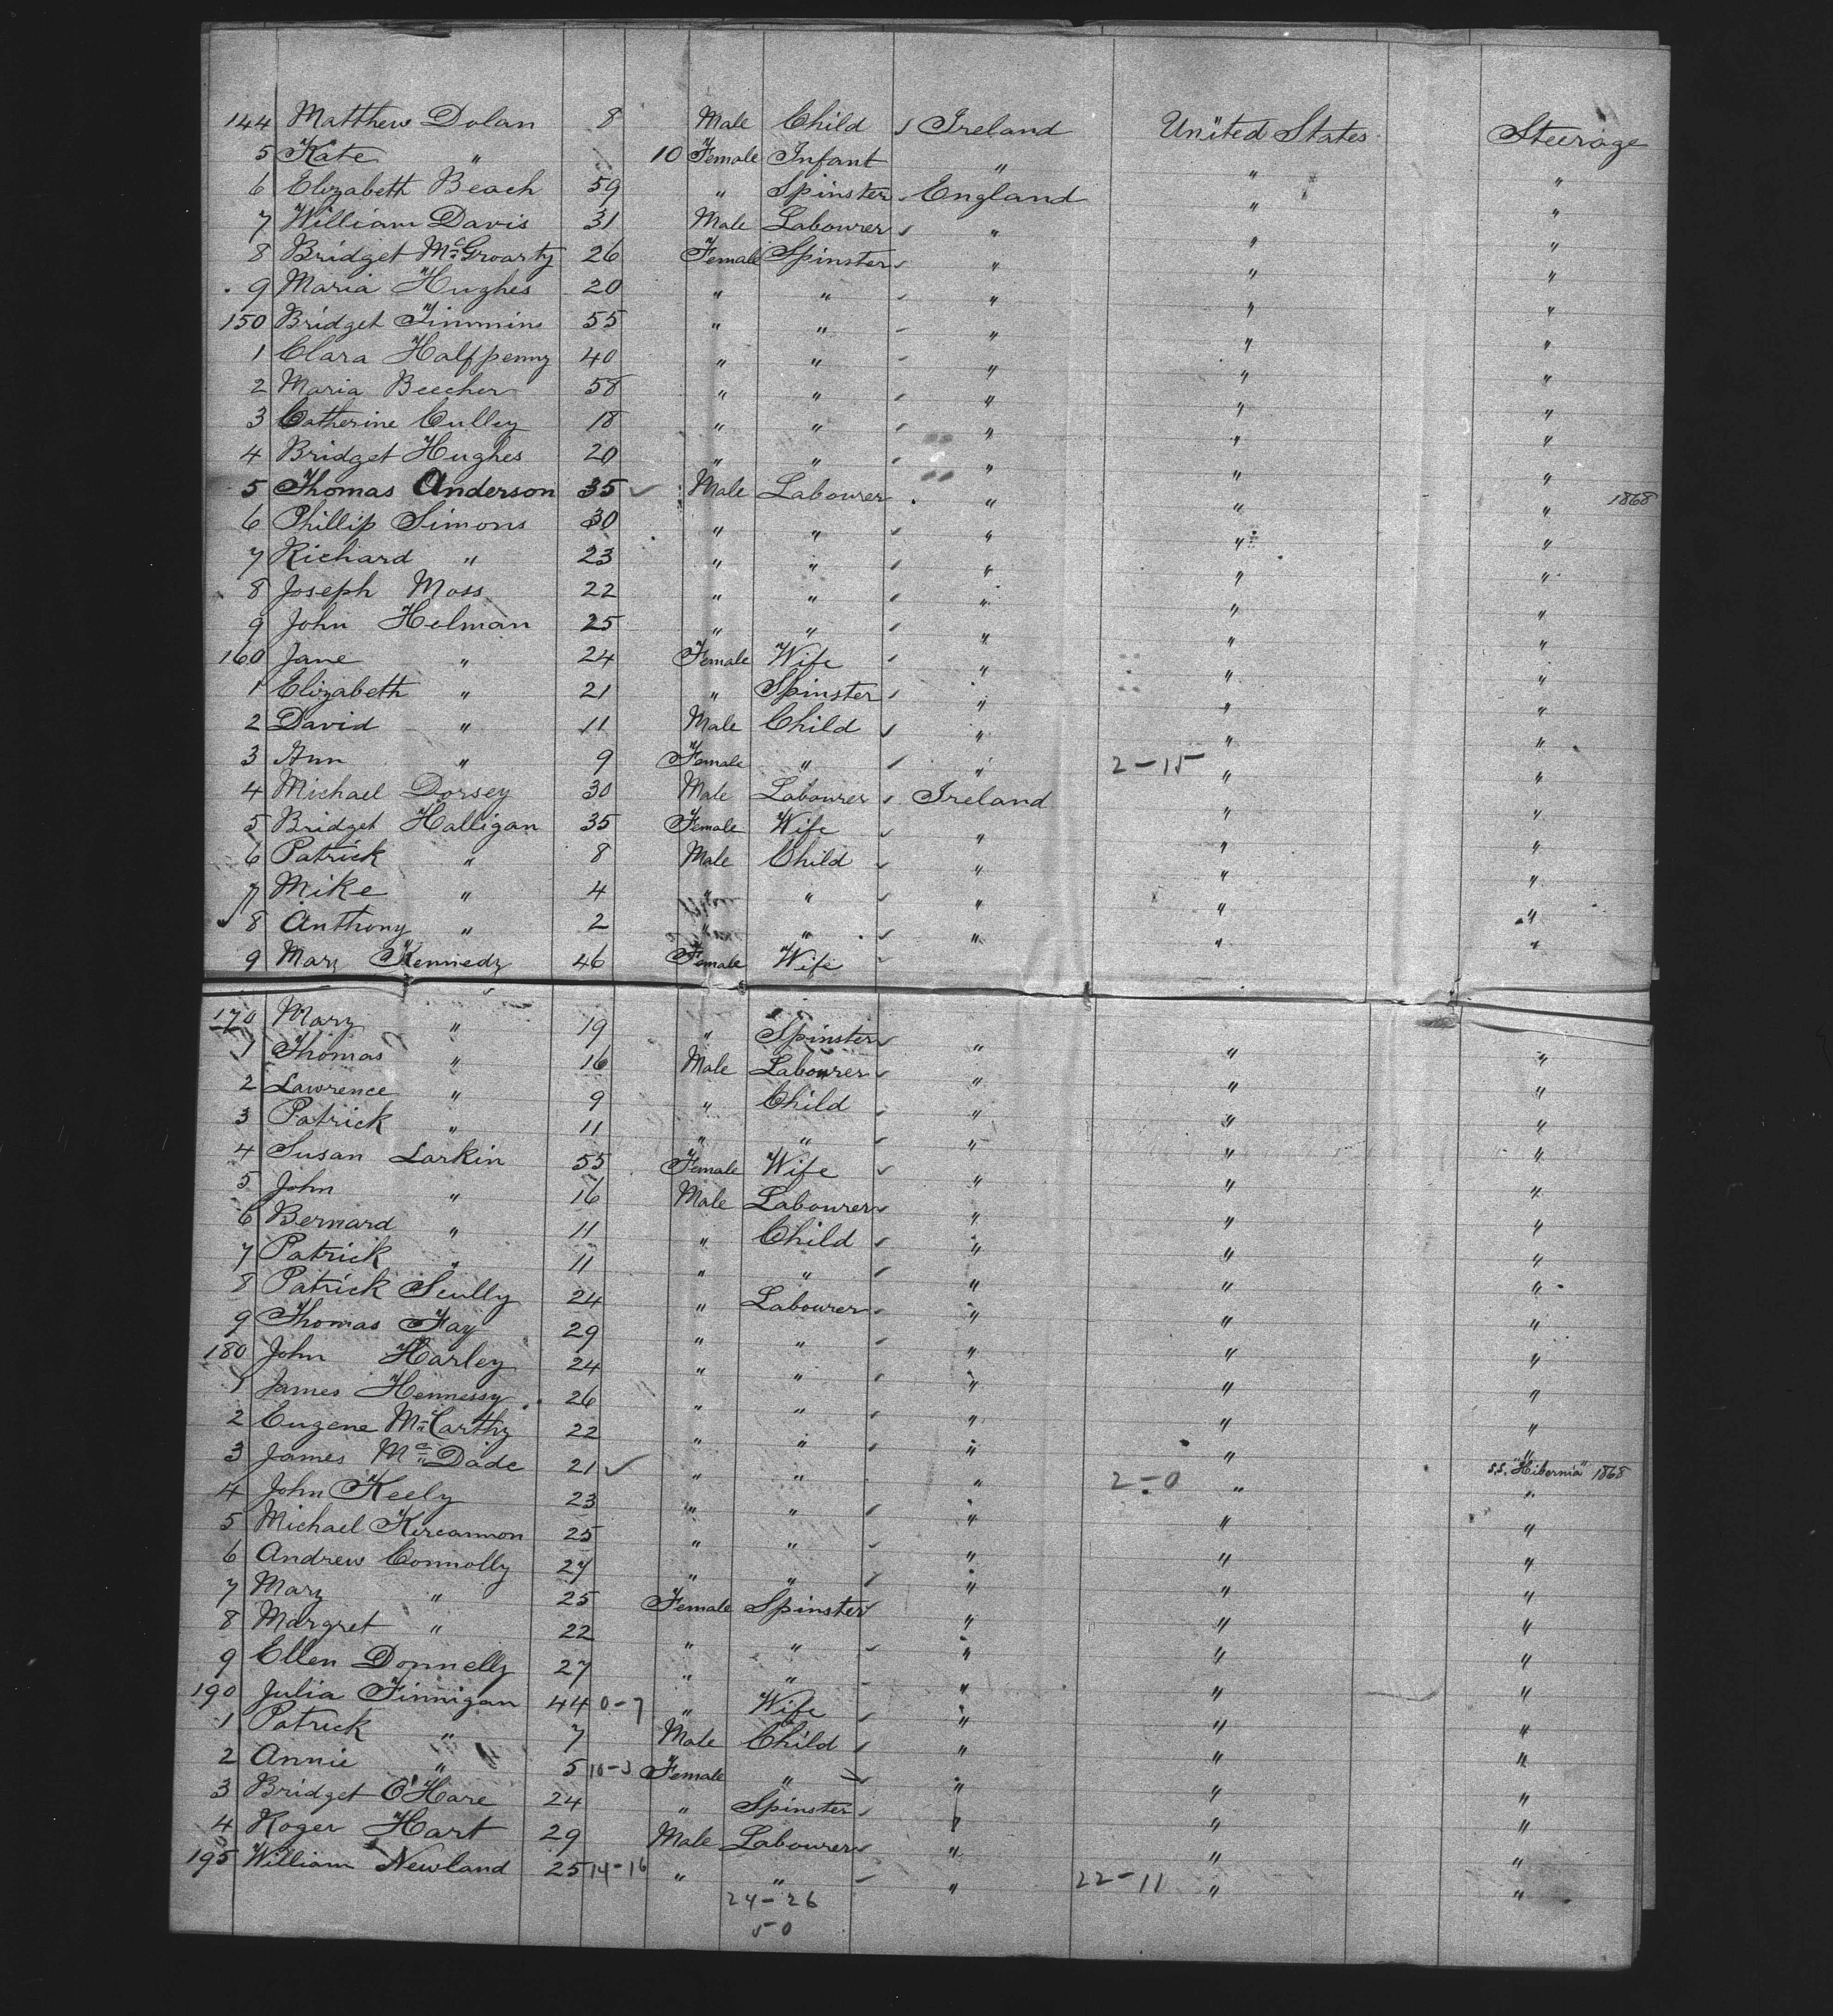 144 Matthew Dolan 8 Male Child Ireland United States Steerage
5 Kate " 10 Female Infant " " "
6 Elizabeth Beach 59 " Spinster England " "
7 William Davis 31 Male Labourer " " "
8 Bridget McGroarty 26 Female Spinster " " "
9 Maria Hughes 20 " " " " "
150 Bridget Timmins 55 " " " " "
1 Clara Halfpenny 40 " " " " "
2 Maria Beecher 58 " " " " "
3 Catherine Culley 18 " " " " "
4 Bridget Hughes 20 " " " " "
5 Thomas Anderson 35 ✓ Male Labourer " " " 1868
6 Phillip Simons 30 " " " " "
7 Richard " 23 " " " " "
8 Joseph Moss 22 " " " " "
9 John Helman 25 " " " " "
160 Jane " 24 Female Wife " " "
1 Elizabeth " 21 " Spinster " " "
2 David " 11 Male Child " " "
3 Ann " 9 Female " " 2-15 " "
4 Michael Dorsey 30 Male Labourer Ireland " "
5 Bridget Halligan 35 Female Wife " " "
6 Patrick " 8 Male Child " " "
7 Mike " 4 " " " " "
8 Anthony " 2 " " " " "
9 Mary Kennedy 46 Female Wife
170 Mary " 19 " Spinster " " "
1 Thomas " 16 Male Labourer " " "
2 Lawrence " 9 " Child " " "
3 Patrick " 11 " " " " "
4 Susan Larkin 55 Female Wife " " "
5 John " 16 Male Labourer " " "
6 Bernard " 11 " Child " " "
7 Patrick " 11 " " " " "
8 Patrick Scully 24 " Labourer " " "
9 Thomas Fay 29 " " " " "
180 John Harley 24 " " " " "
1 James Hennessy 26 " " " " "
2 Eugene McCarthy 22 " " " " "
3 James McDade 21 ✓ " " " 2-0 " S.S. "Hibernia" 1868
4 John Keely 23 " " " " "
5 Michael Kircannon 25 " " " " "
6 Andrew Connolly 27 " " " " "
7 Mary " 25 Female Spinster " " "
8 Margret " 22 " " " " "
9 Ellen Donnelly 27 " " " " "
190 Julia Finnigan 44 0-7 " Wife " " "
1 Patrick " 7 Male Child " " "
2 Annie " 5 10-3 Female " " " "
3 Bridget O'Hare 24 " Spinster " " "
4 Roger Hart 29 Male Labourer " " "
195 William Newland 25 14-16 " " " 22-11 " "
24-26
50